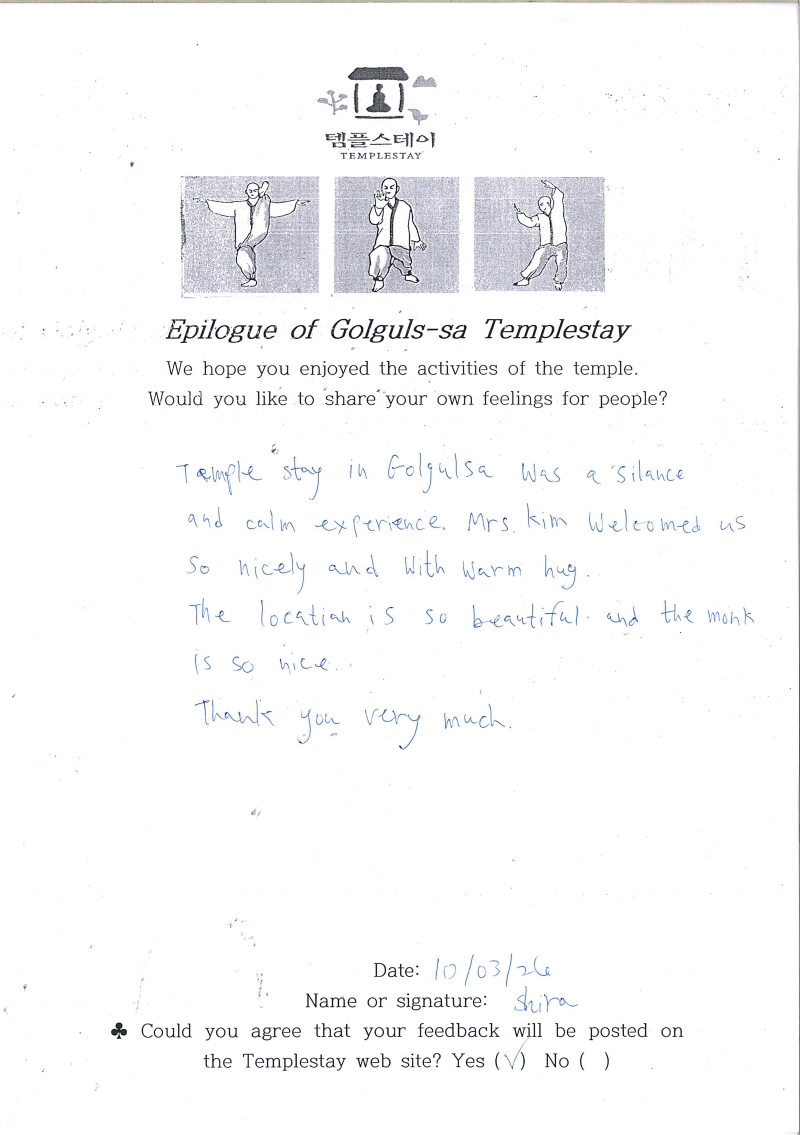 템플스테이
TEMPLESTAY
Epilogue of Golguls-sa Templestay
We hope you enjoyed the activities of the temple.
Would you like to share your own feelings for people?
Temple stay in Golgulsa was a silance
and calm experience. Mrs. kim Welcomed us
so nicely and with warm hug.
The location is so beautiful. and the monk
is so nice..
Thank you very much.
Date: 10/03/26
Name or signature: Shira
♣ Could you agree that your feedback will be posted on
the Templestay web site? Yes (√) No ( )